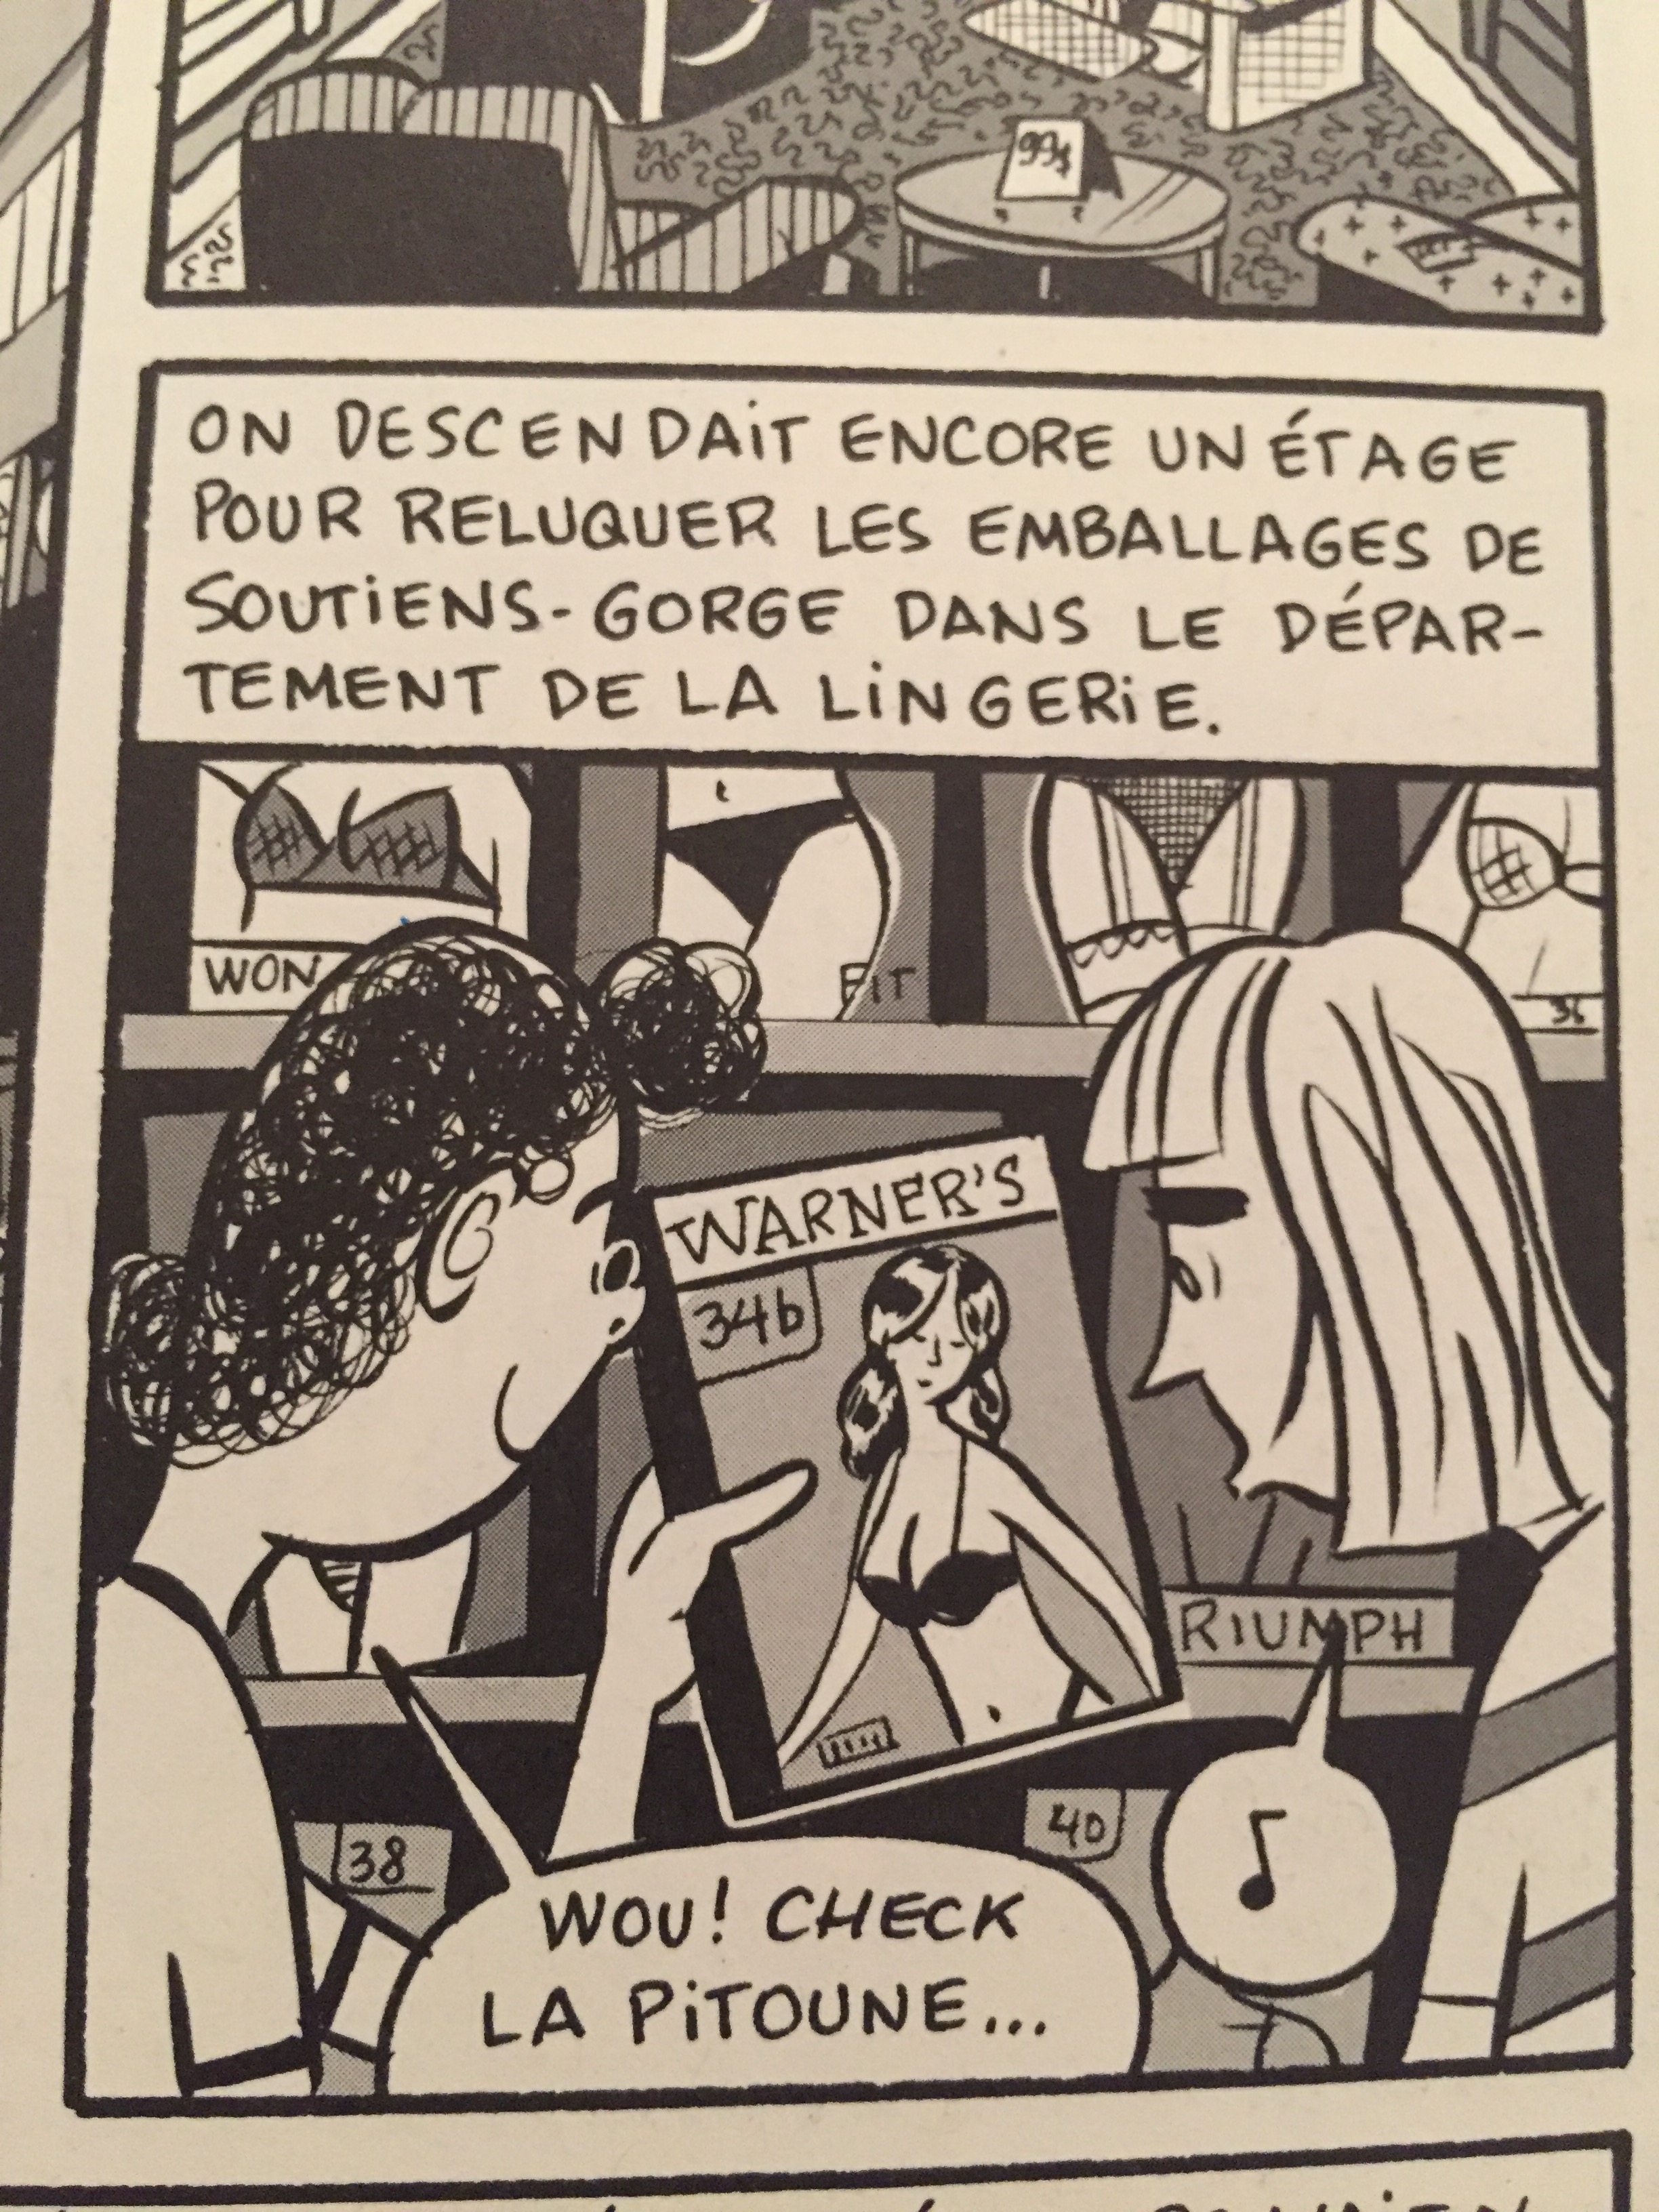 99¢
ON DESCENDAIT ENCORE UN ÉTAGE
POUR RELUQUER LES EMBALLAGES DE
SOUTIENS-GORGE DANS LE DÉPAR-
TEMENT DE LA LINGERIE.
WON
FIT
36
WARNER'S
34b
RIUMPH
38
40
WOU! CHECK
LA PITOUNE...